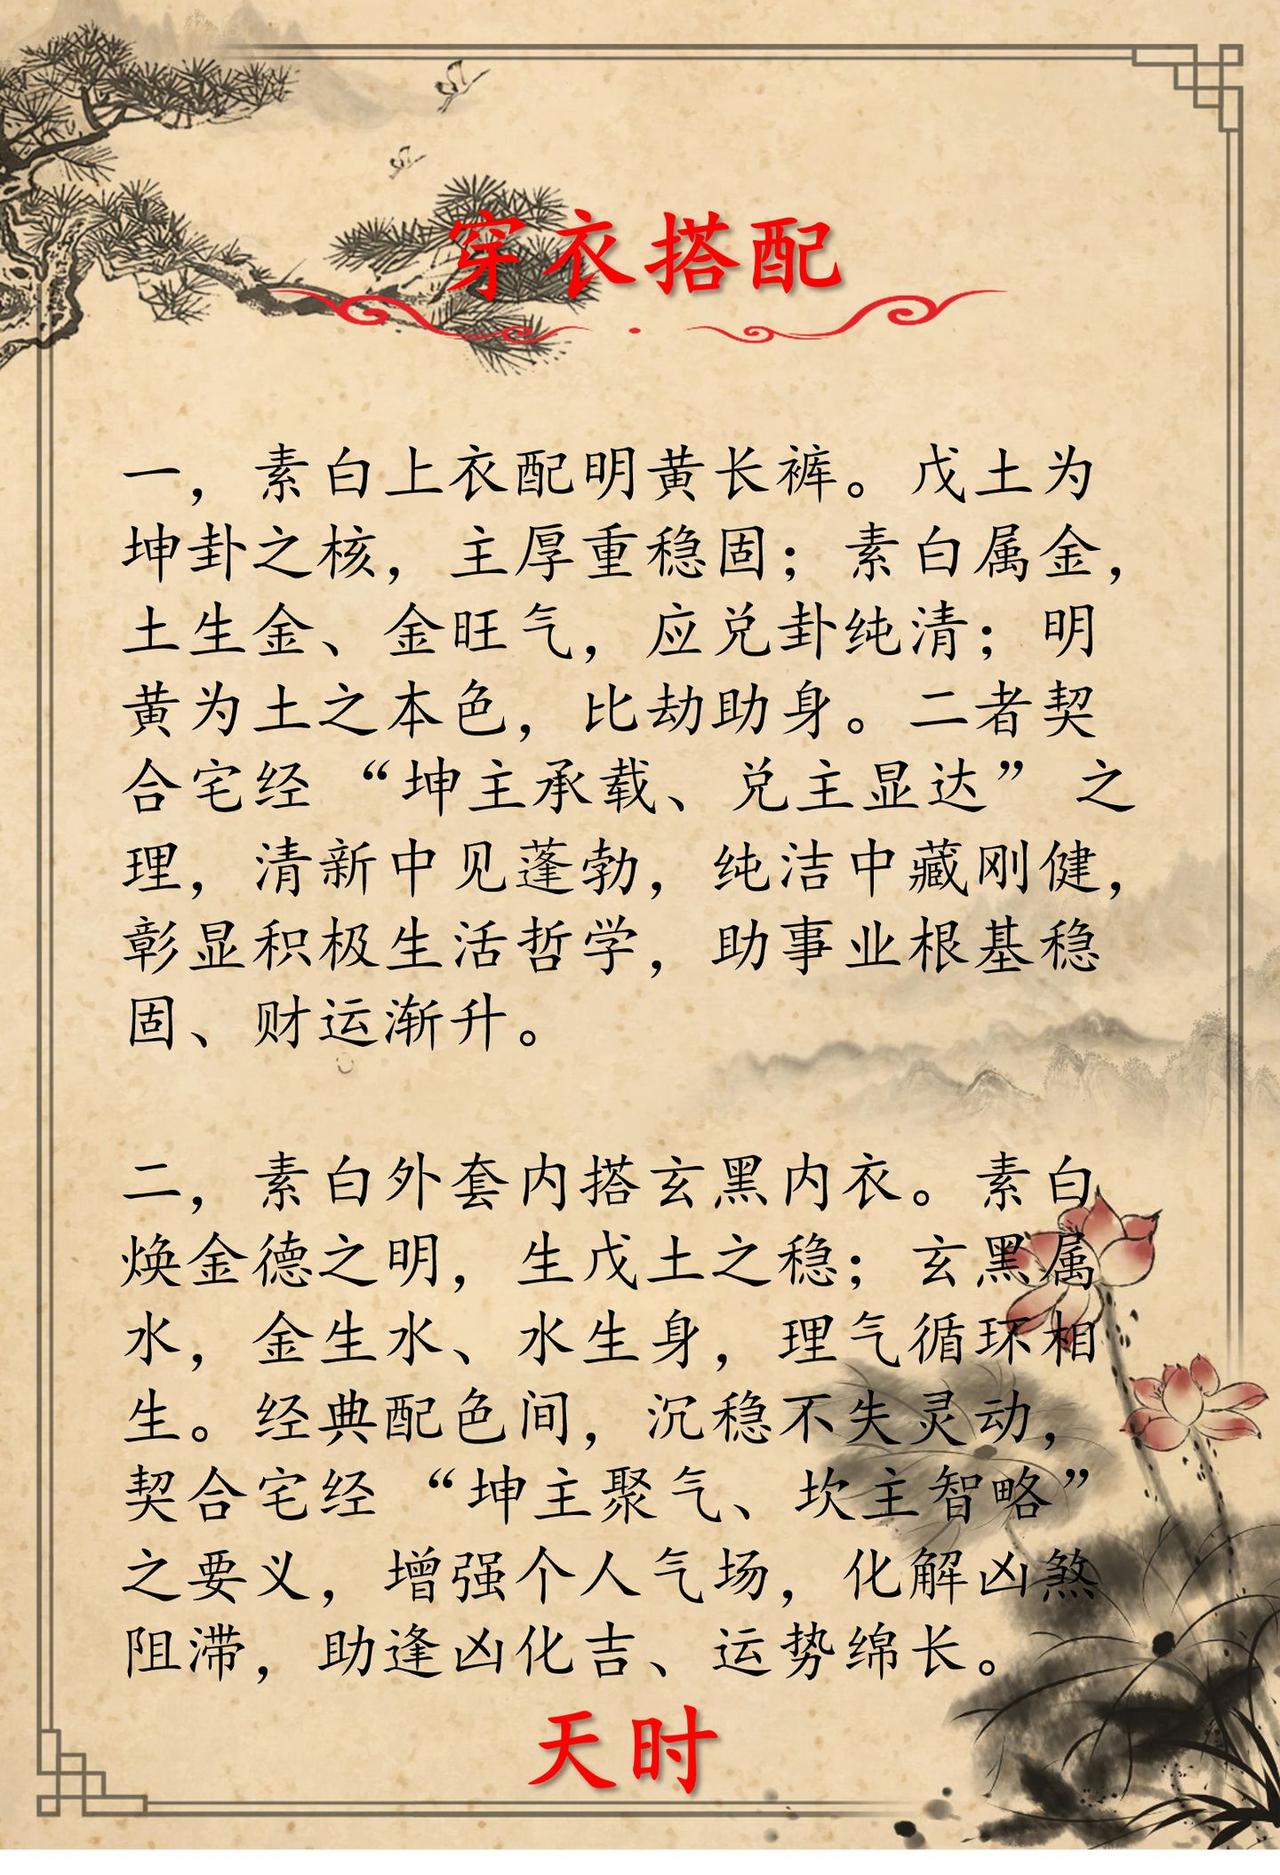 穿衣搭配
一，素白上衣配明黄长裤。戊土为
坤卦之核，主厚重稳固；素白属金，
土生金、金旺气，应兑卦纯清；明
黄为土之本色，比劫助身。二者契
合宅经“坤主承载、兑主显达”之
理，清新中见蓬勃，纯洁中藏刚健，
彰显积极生活哲学，助事业根基稳
固、财运渐升。
二，素白外套内搭玄黑内衣。素白
焕金德之明，生戊土之稳；玄黑属
水，金生水、水生身，理气循环相
生。经典配色间，沉稳不失灵动，
契合宅经“坤主聚气、坎主智略”
之要义，增强个人气场，化解凶煞
阻滞，助逢凶化吉、运势绵长。
天时